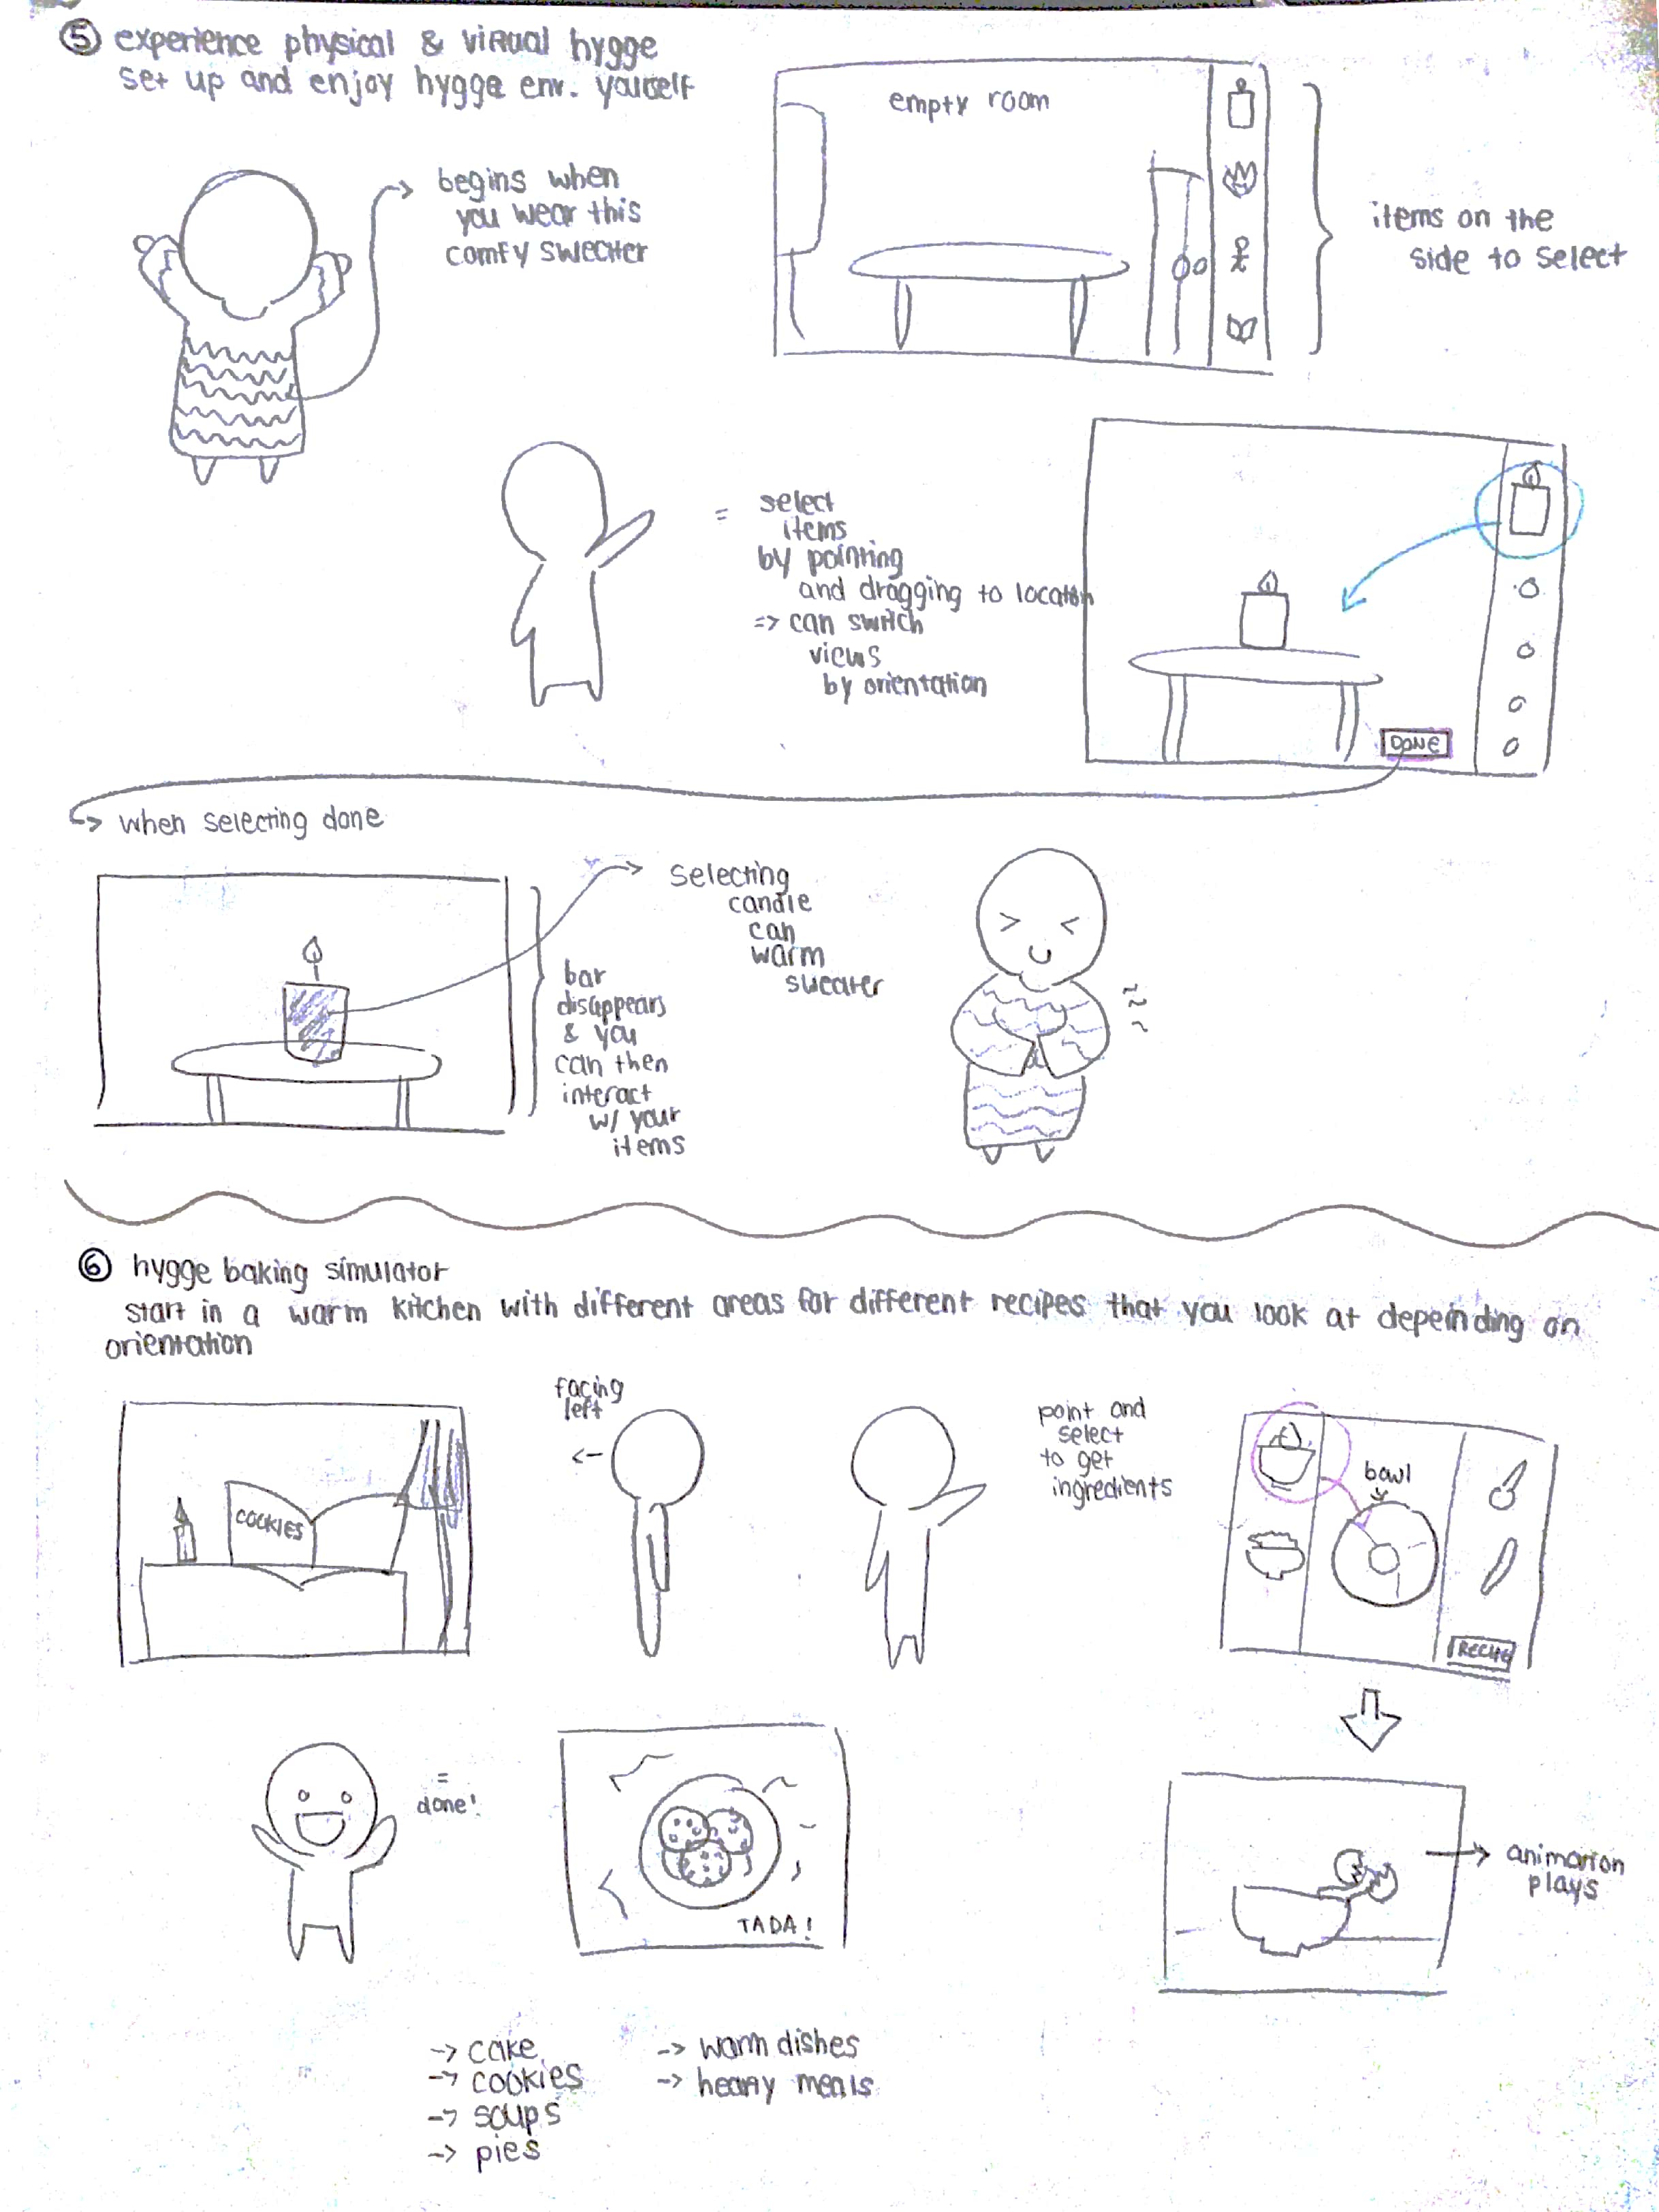 ⑤ experience physical & virtual hygge
set up and enjoy hygge env. yourself
begins when
you wear this
comfy sweater
empty room
items on the
side to select
= select
items
by pointing
and dragging to location
=> can switch
views
by orientation
DONE
-> when selecting done
selecting
candle
can
warm
sweater
bar
disappears
& you
can then
interact
w/ your
items
⑥ hygge baking simulator
start in a warm kitchen with different areas for different recipes that you look at depending on
orientation
COOKIES
facing
left
<-
point and
select
to get
ingredients
bowl
RECIPE
= done!
TADA!
animation
plays
-> cake
-> cookies
-> soups
-> pies
-> warm dishes
-> heavy meals